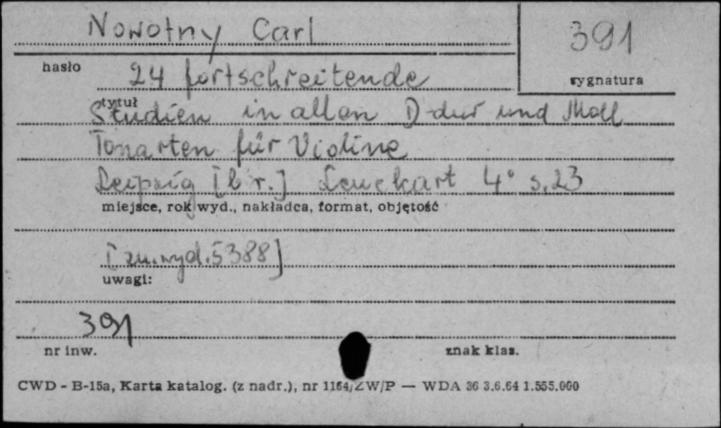 Nowotny Carl
391
hasło
24 fortschreitende
sygnatura
tytuł
Studien in allen D-dur und Moll
Tonarten für Violine
Leipzig [b r.] Leuckart 4° s.23
miejsce, rok wyd., nakładca, format, objętość
[zn.wyd.5388]
uwagi:
391
nr inw.
znak klas.
CWD - B-15a, Karta katalog. (z nadr.), nr 1164/ZW/P — WDA 36 3.6.64 1.555.000